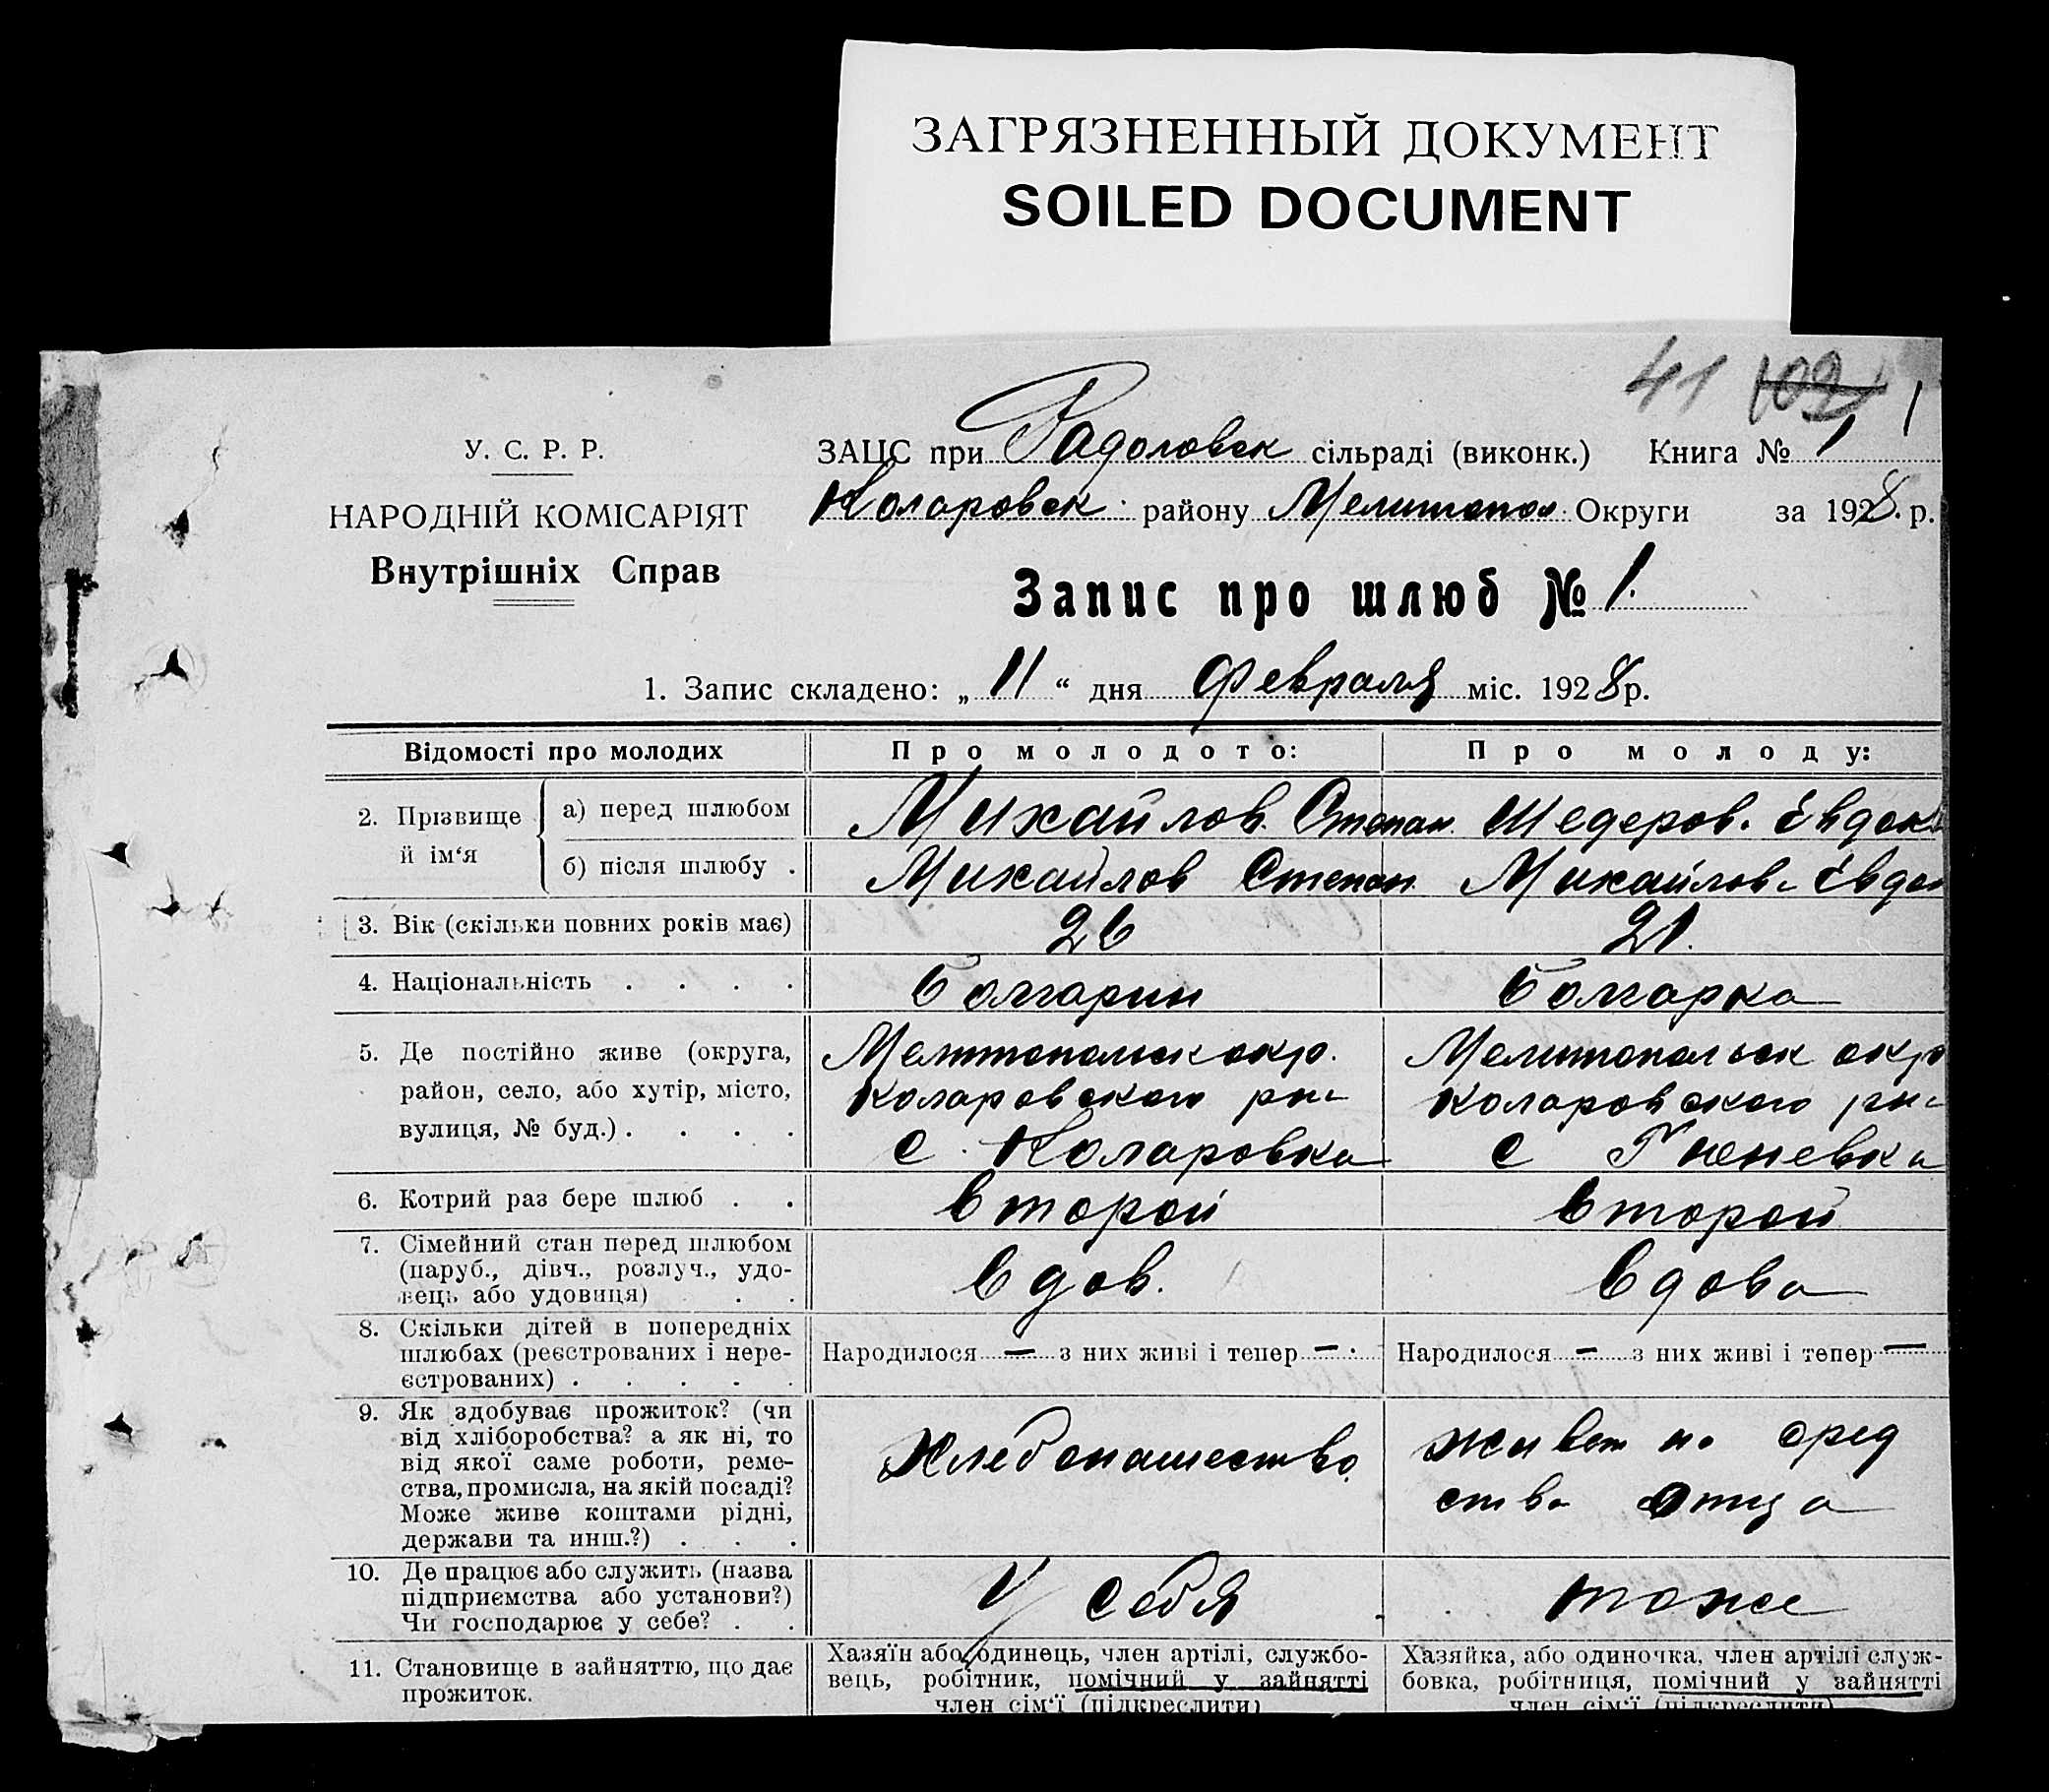 ЗАГРЯЗНЕННЫЙ ДОКУМЕНТ
SOILED DOCUMENT
41 102 1
У. С. Р. Р.
НАРОДНІЙ КОМІСАРІЯТ
Внутрішніх Справ
ЗАЦС при Радоловск сільраді (виконк.) Книга № 1
Коларовск. району Мелитопол. Округи за 1928. р.
Запис про шлюб № 1.
1. Запис складено: „ 11 “ дня Февраля міс. 1928 р.
Відомості про молодих
Про молодого:
Про молоду:
2. Прізвище й ім‘я
а) перед шлюбом
Михайлов Степан
Шедеров. Евдок
б) після шлюбу .
Михайлов Степан
Михайлов Евдок
3. Вік (скільки повних років має)
26
21.
4. Національність . . . .
болгарин
болгарка
5. Де постійно живе (округа,
район, село, або хутір, місто,
вулиця, № буд.) . . . .
Мелитопольск окр.
Коларовского рна
с. Коларовка
Мелитопольск окр
Коларовского рна
с Гюневка
6. Котрий раз бере шлюб . .
второй
второй
7. Сімейний стан перед шлюбом
(паруб., дівч., розлуч., удо-
вець або удовиця) . .
вдов.
вдова
8. Скільки дітей в попередніх
шлюбах (реєстрованих і нере-
єстрованих) . . . . .
Народилося — з них живі і тепер — .
Народилося — з них живі і тепер —
9. Як здобуває прожиток? (чи
від хліборобства? а як ні, то
від якої саме роботи, реме-
ства, промисла, на якій посаді?
Може живе коштами рідні,
держави та инш.?) . . .
Хлебопашество
живет на сред
ства отца
10. Де працює або служить (назва
підприємства або установи?)
Чи господарює у себе? . .
У себя
тоже
11. Становище в зайняттю, що дає
прожиток.
Хазяїн або одинець, член артілі, службо-
вець, робітник, помічний у зайнятті
член сім‘ї (підкреслити)
Хазяйка, або одиночка, член артілі служ-
бовка, робітниця, помічний у зайнятті
член сім‘ї (підкреслити)